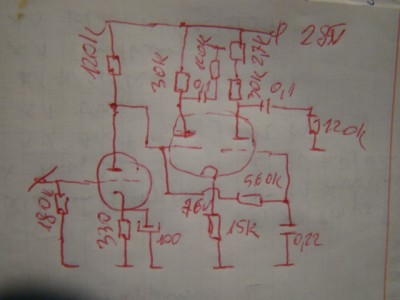 120k
30k
0,1
100k
2,7k
30k
0,1
120k
180k
330
100
76v
15k
560k
0,22